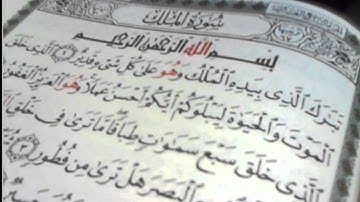 سُورَةُ الْمُلْكِ
بِسْمِ اللهِ الرَّحْمٰنِ الرَّحِيْمِ
تَبٰرَكَ الَّذِى بِيَدِهِ الْمُلْكُ وَهُوَ عَلٰى كُلِّ شَىْءٍ قَدِيْرٌ ۝ الَّذِى خَلَقَ
الْمَوْتَ وَالْحَيٰوةَ لِيَبْلُوَكُمْ اَيُّكُمْ اَحْسَنُ عَمَلًا وَهُوَ الْعَزِيْزُ الْغَفُوْرُ
الَّذِى خَلَقَ سَبْعَ سَمٰوٰتٍ طِبَاقًا مَا تَرٰى فِى خَلْقِ
الْبَصَرَ هَلْ تَرٰى مِنْ فُطُوْرٍ ۝٣